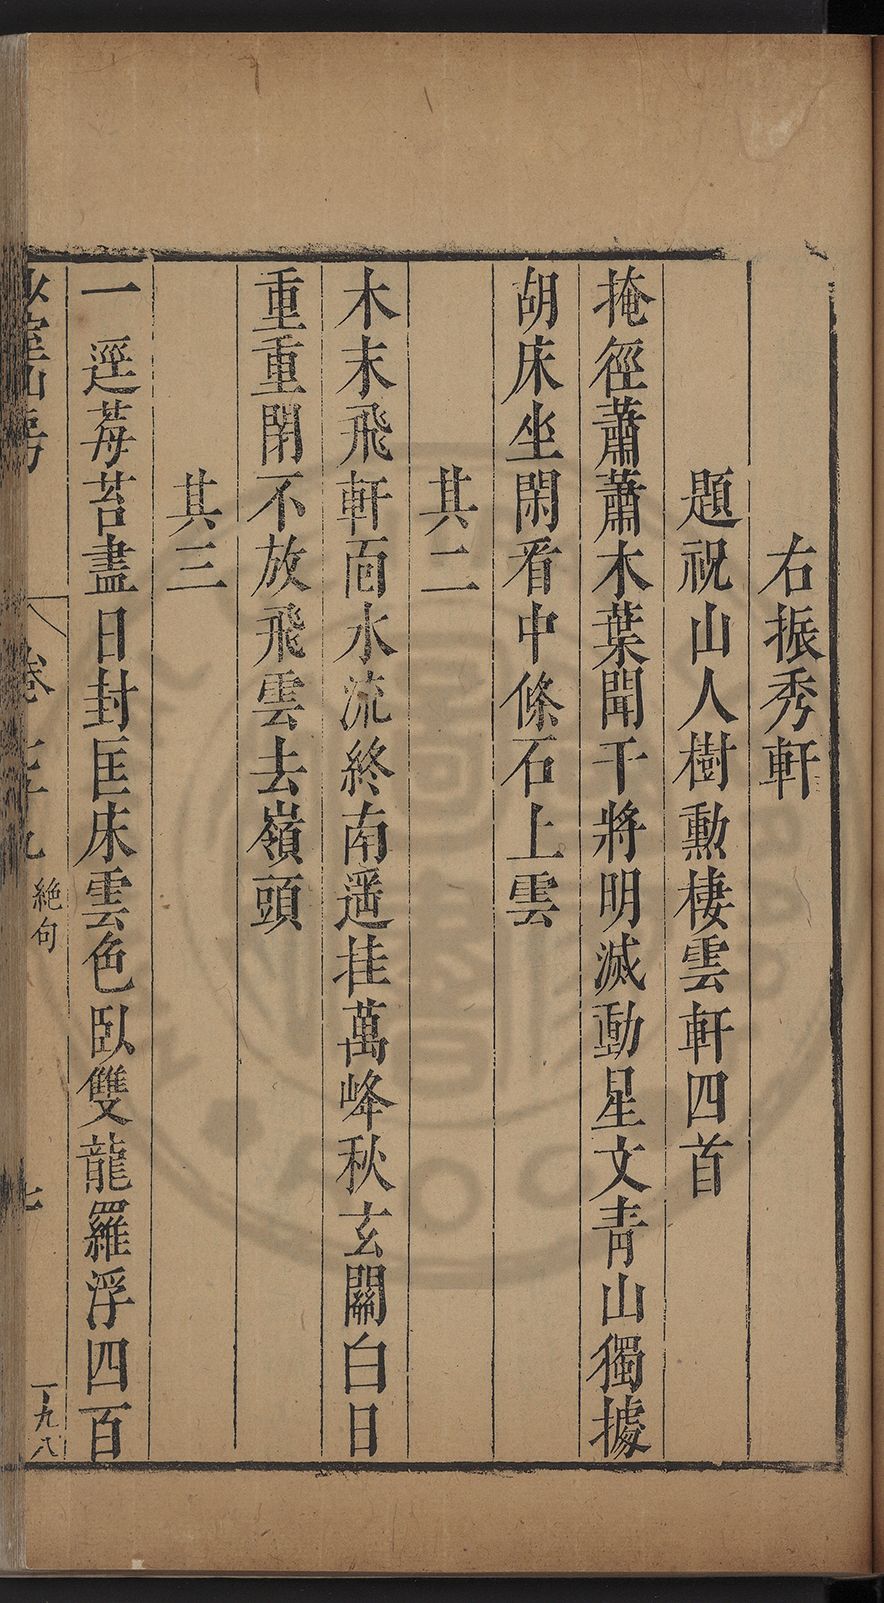 右振秀軒
題祝山人樹勲棲雲軒四首
掩徑蕭蕭木葉聞干將明滅動星文青山獨據
胡床坐閑看中條石上雲
其二
木末飛軒面水流終南遥挂萬峰秋玄關白日
重重閉不放飛雲去嶺頭
其三
一逕莓苔盡日封匡床雲色臥雙龍羅浮四百
少室山房
卷七十九
絶句
七
一九八